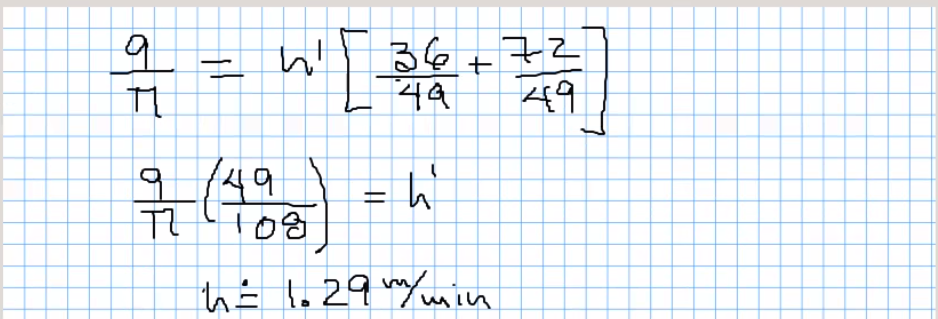 9/π = h' [ 36/49 + 72/49 ]
9/π (49/108) = h'
h' = 1.29 m/min